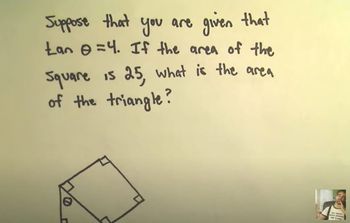 Suppose that you are given that
tan θ = 4. If the area of the
square is 25, what is the area
of the triangle?
θ